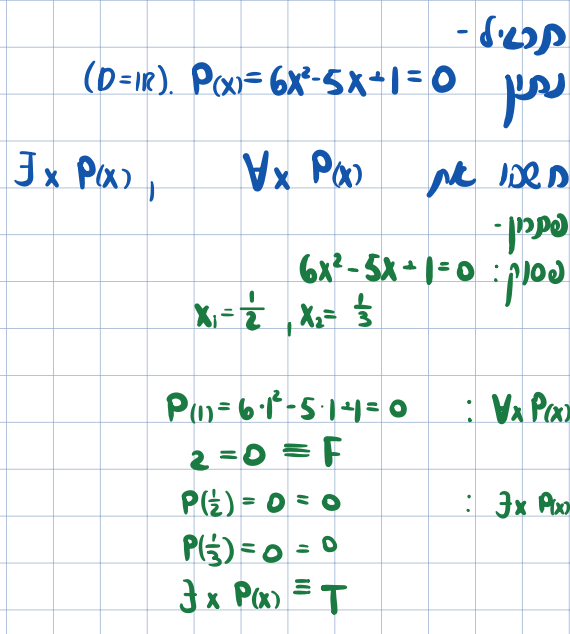 תרגיל -
נתון P(x) = 6x² - 5x + 1 = 0 .(D = IR)
חשבו את ∀x P(x) , ∃x P(x)
פתרון -
פסוק: 6x² - 5x + 1 = 0
x₁ = 1/2 , x₂ = 1/3
∀x P(x) : P(1) = 6·1² - 5·1 + 1 = 0
2 = 0 ≡ F
∃x P(x) : P(1/2) = 0 = 0
P(1/3) = 0 = 0
∃x P(x) ≡ T